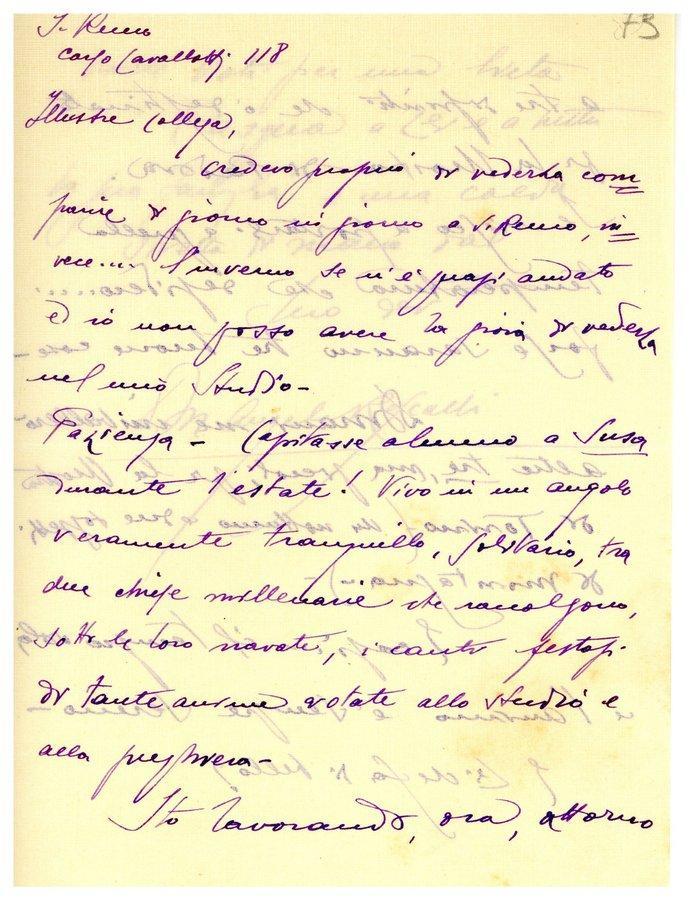 73
S. Remo
corso Cavallotti 118
Illustre Collega,
credevo proprio di vederLa com=
parire di giorno in giorno a S. Remo, in=
vece.... l'inverno se n'è quasi andato
ed io non posso avere la gioia di vederLa
nel mio Studio -
Pazienza - Capitasse almeno a Susa
durante l'estate! Vivo in un angolo
veramente tranquillo, solitario, tra
due chiese millenarie che raccolgono,
sotto le loro navate, i canti festosi
di tante anime votate allo studio e
alla preghiera -
Sto lavorando, ora, attorno